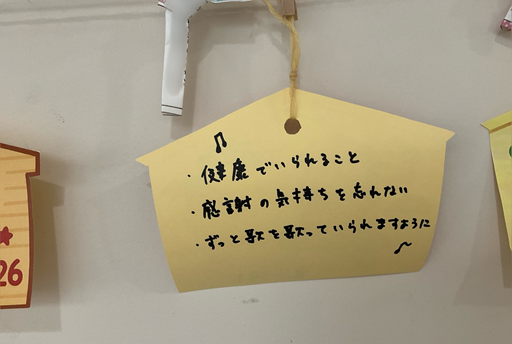 ♫
・健康でいられること
・感謝の気持ちを忘れない
・ずっと歌を歌っていられますように
♪
26